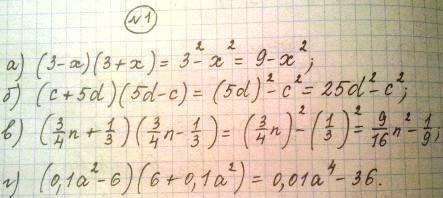 №1
а) (3-x)(3+x) = 3² - x² = 9-x²;
б) (c+5d)(5d-c) = (5d)² - c² = 25d² - c²;
в) (3/4 n + 1/3)(3/4 n - 1/3) = (3/4 n)² - (1/3)² = 9/16 n² - 1/9;
г) (0,1a² - 6)(6 + 0,1a²) = 0,01a⁴ - 36.